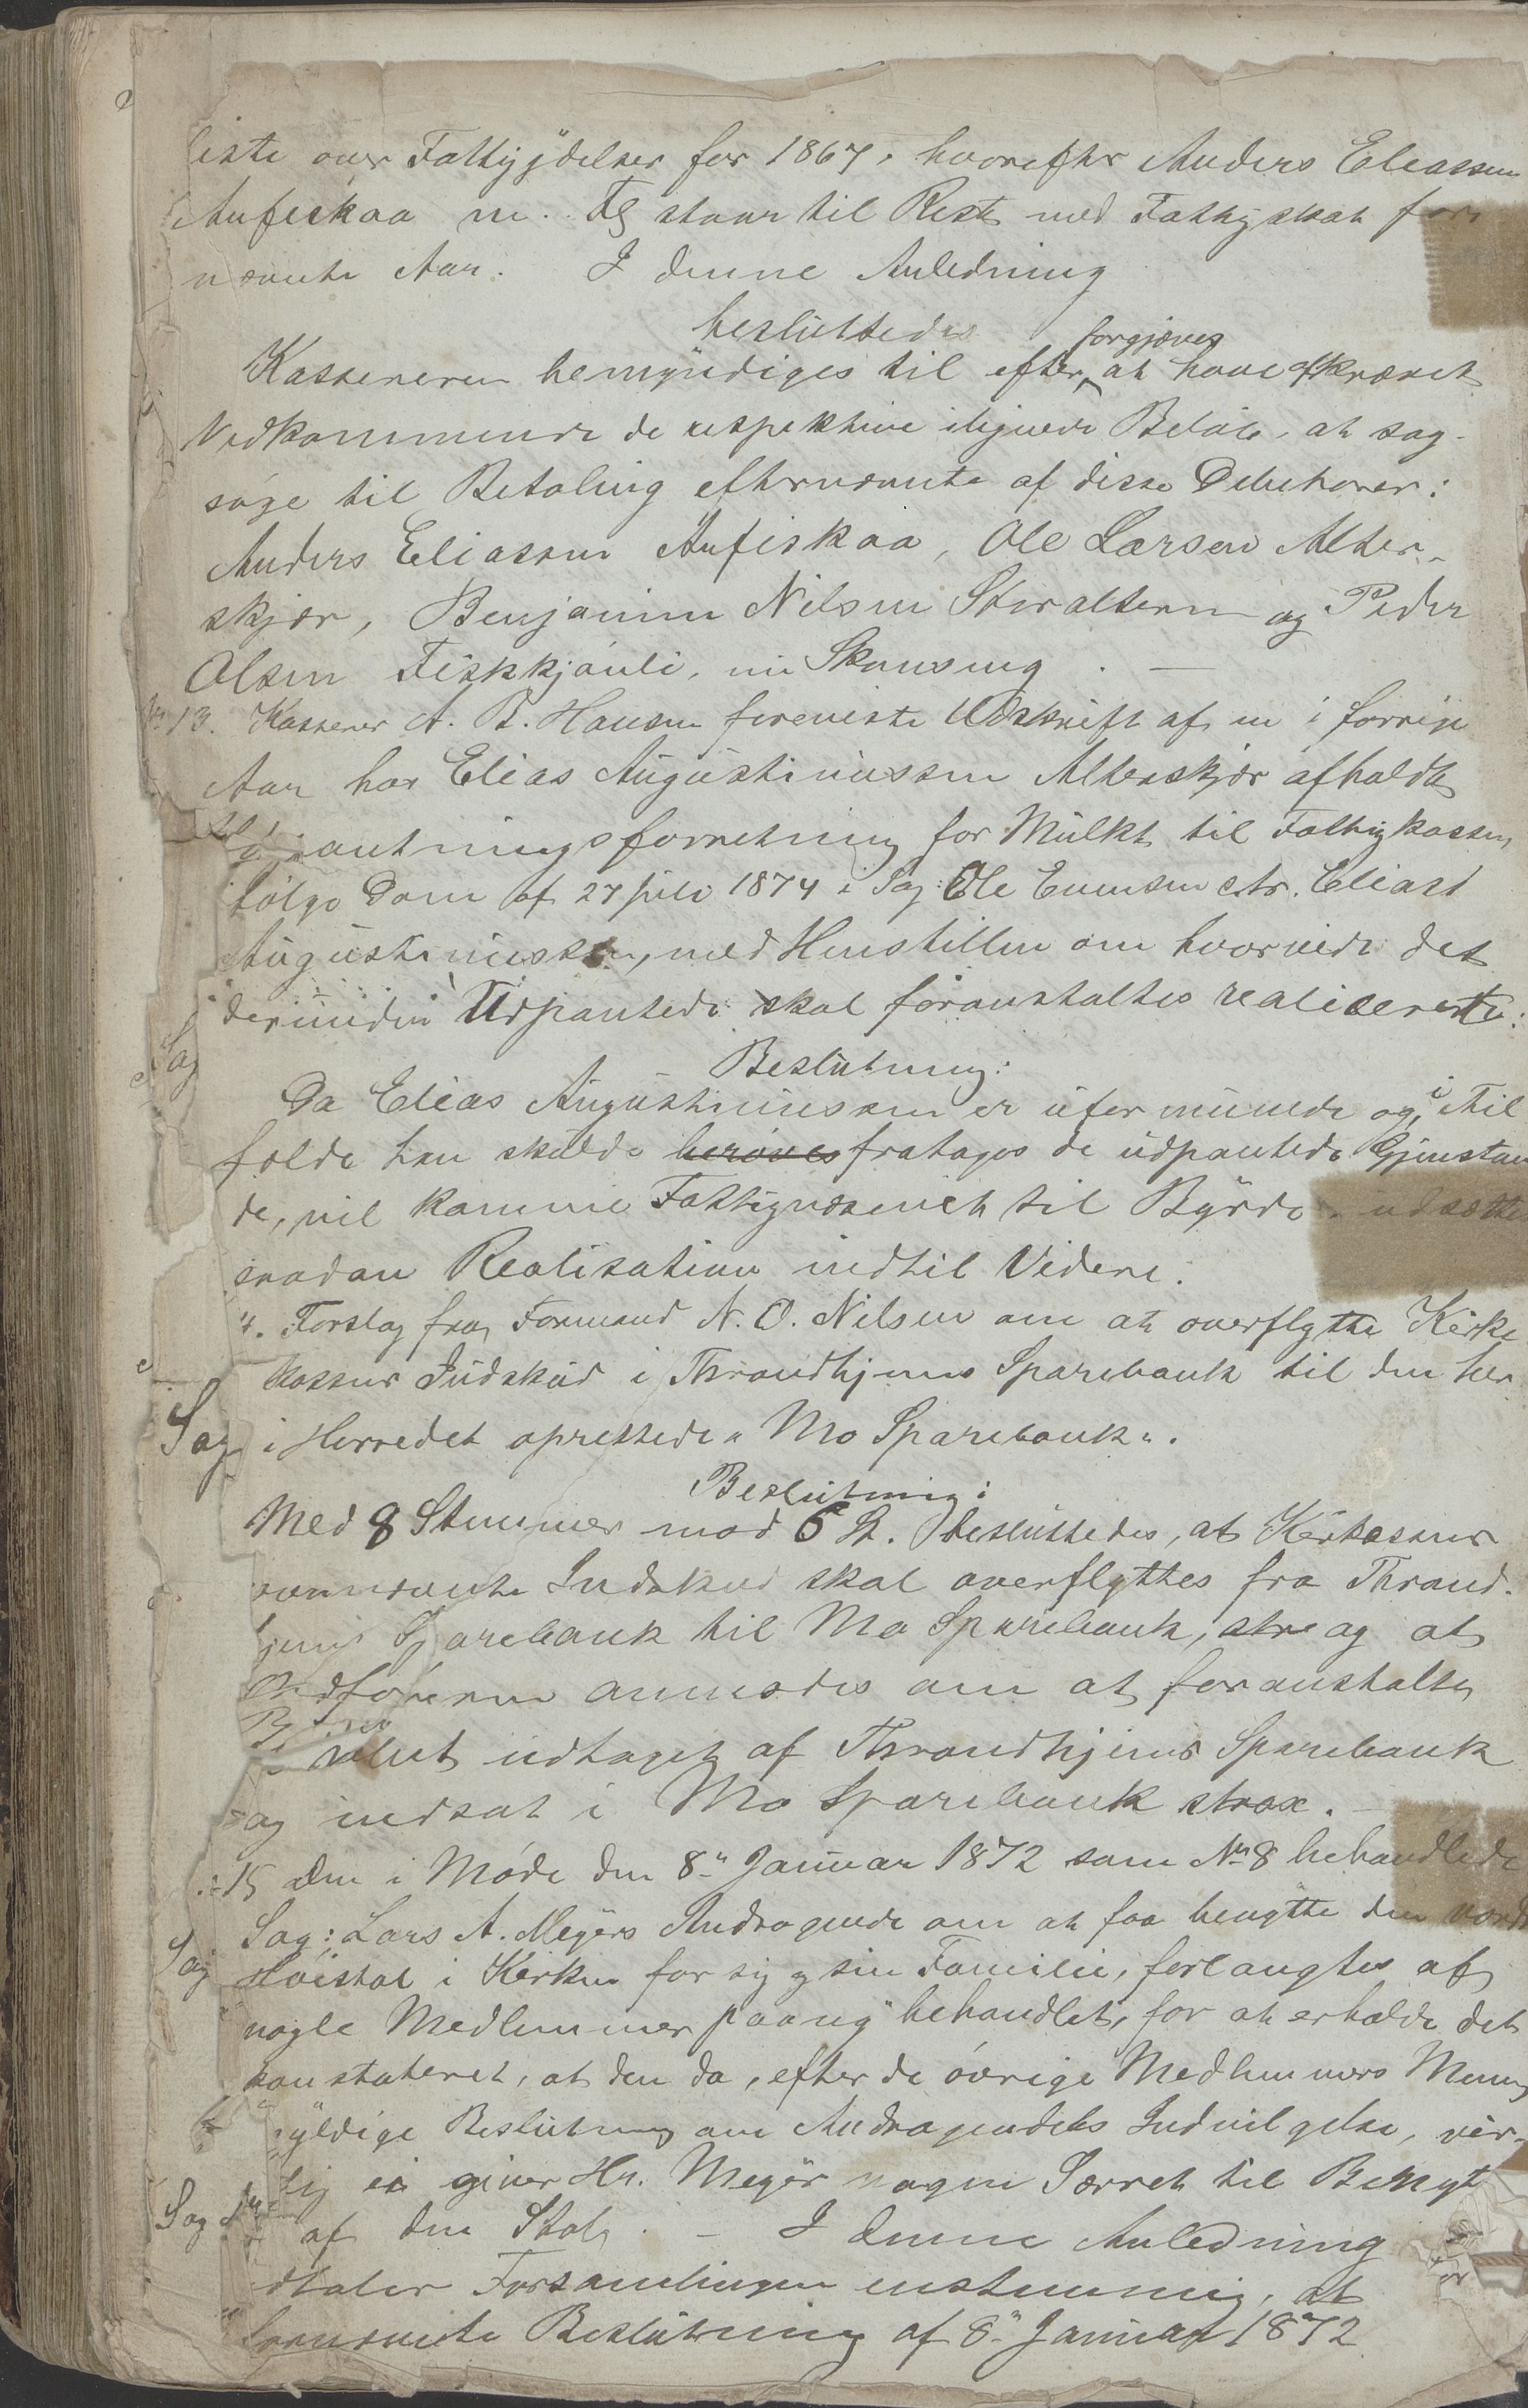 liste over Fattigydelser for 1867, hvorefter Anders Eliassen
Aufiskaa m. Fl staar til Rest med Fattigskat for
nævnte Aar. I denne Anledning
besluttedes
Kassereren bemyndiges til efter forgjæves at have afkrævet
Vedkommende de respektive ilignede Beløb, at sag-
søge til Betaling efternævnte af disse Debitorer:
Anders Eliassen Aufiskaa, Ole Larsen Alter-
skjær, Benjamin Nilsen Storalteren og Peder
Olsen Fiskkjønli, nu Skonseng. —
No 13. Kasserer A. B. Hansen foreviste Udskrift af en i forrige
Aar hos Elias Augustinussen Alterskjær afholdt
Udpantningsforretning for Mulkt til Fattigkassen,
følge Dom af 27 juli 1874 i Sag: Ole Evensen ctr. Elias
Augustinussen, med Henstillen om hvorvidt det
derunder Udpantede skal foranstaltes realiseret:
Beslutning:
Da Elias Augustinussen er uformuende og, i Til
fælde han skulde berøves fratages de udpantede Gjenstan
de, vil komme Fattigvæsenet til Byrde, udsættes
saadan Realisation indtil Videre.
4. Forslag fra Formand N. O. Nilsen om at overflytte Kirke
kassens Indskud i Throndhjems Sparebank til den her
Sag i Herredet oprettede „Mo Sparebank".
Beslutning:
Med 8 Stemmer mod 6 St. besluttedes, at Kirkekassens
ovennævnte Indskud skal overflyttes fra Thrond-
hjems Sparebank til Mo Sparebank, strax og at
Ordføreren anmodes om at foranstalte
Beløbet udtaget af Throndhjems Sparebank
og indsat i Mo Sparebank strax. —
15 Den i Møde den 8de Januar 1872 som No 8 behandlede
Sag: Lars A. Meyers Andragende om at faa benytte den nordre
Sag Høistol i Kirken for sig og sin Familie, forlangtes af
nogle Medlemmer paany behandlet, for at erholde det
konstateret, at den da, efter de øvrige Medlemmers Mening
gyldige Beslutning om Andragendets Indvilgelse, vir-
lig ei giver Hr. Meyer nogen Særret til Benyt
Sag af den Stol. — I denne Anledning
udtaler Forsamlingen enstemmig, at
fornævnte Beslutning af 8de Januar 1872